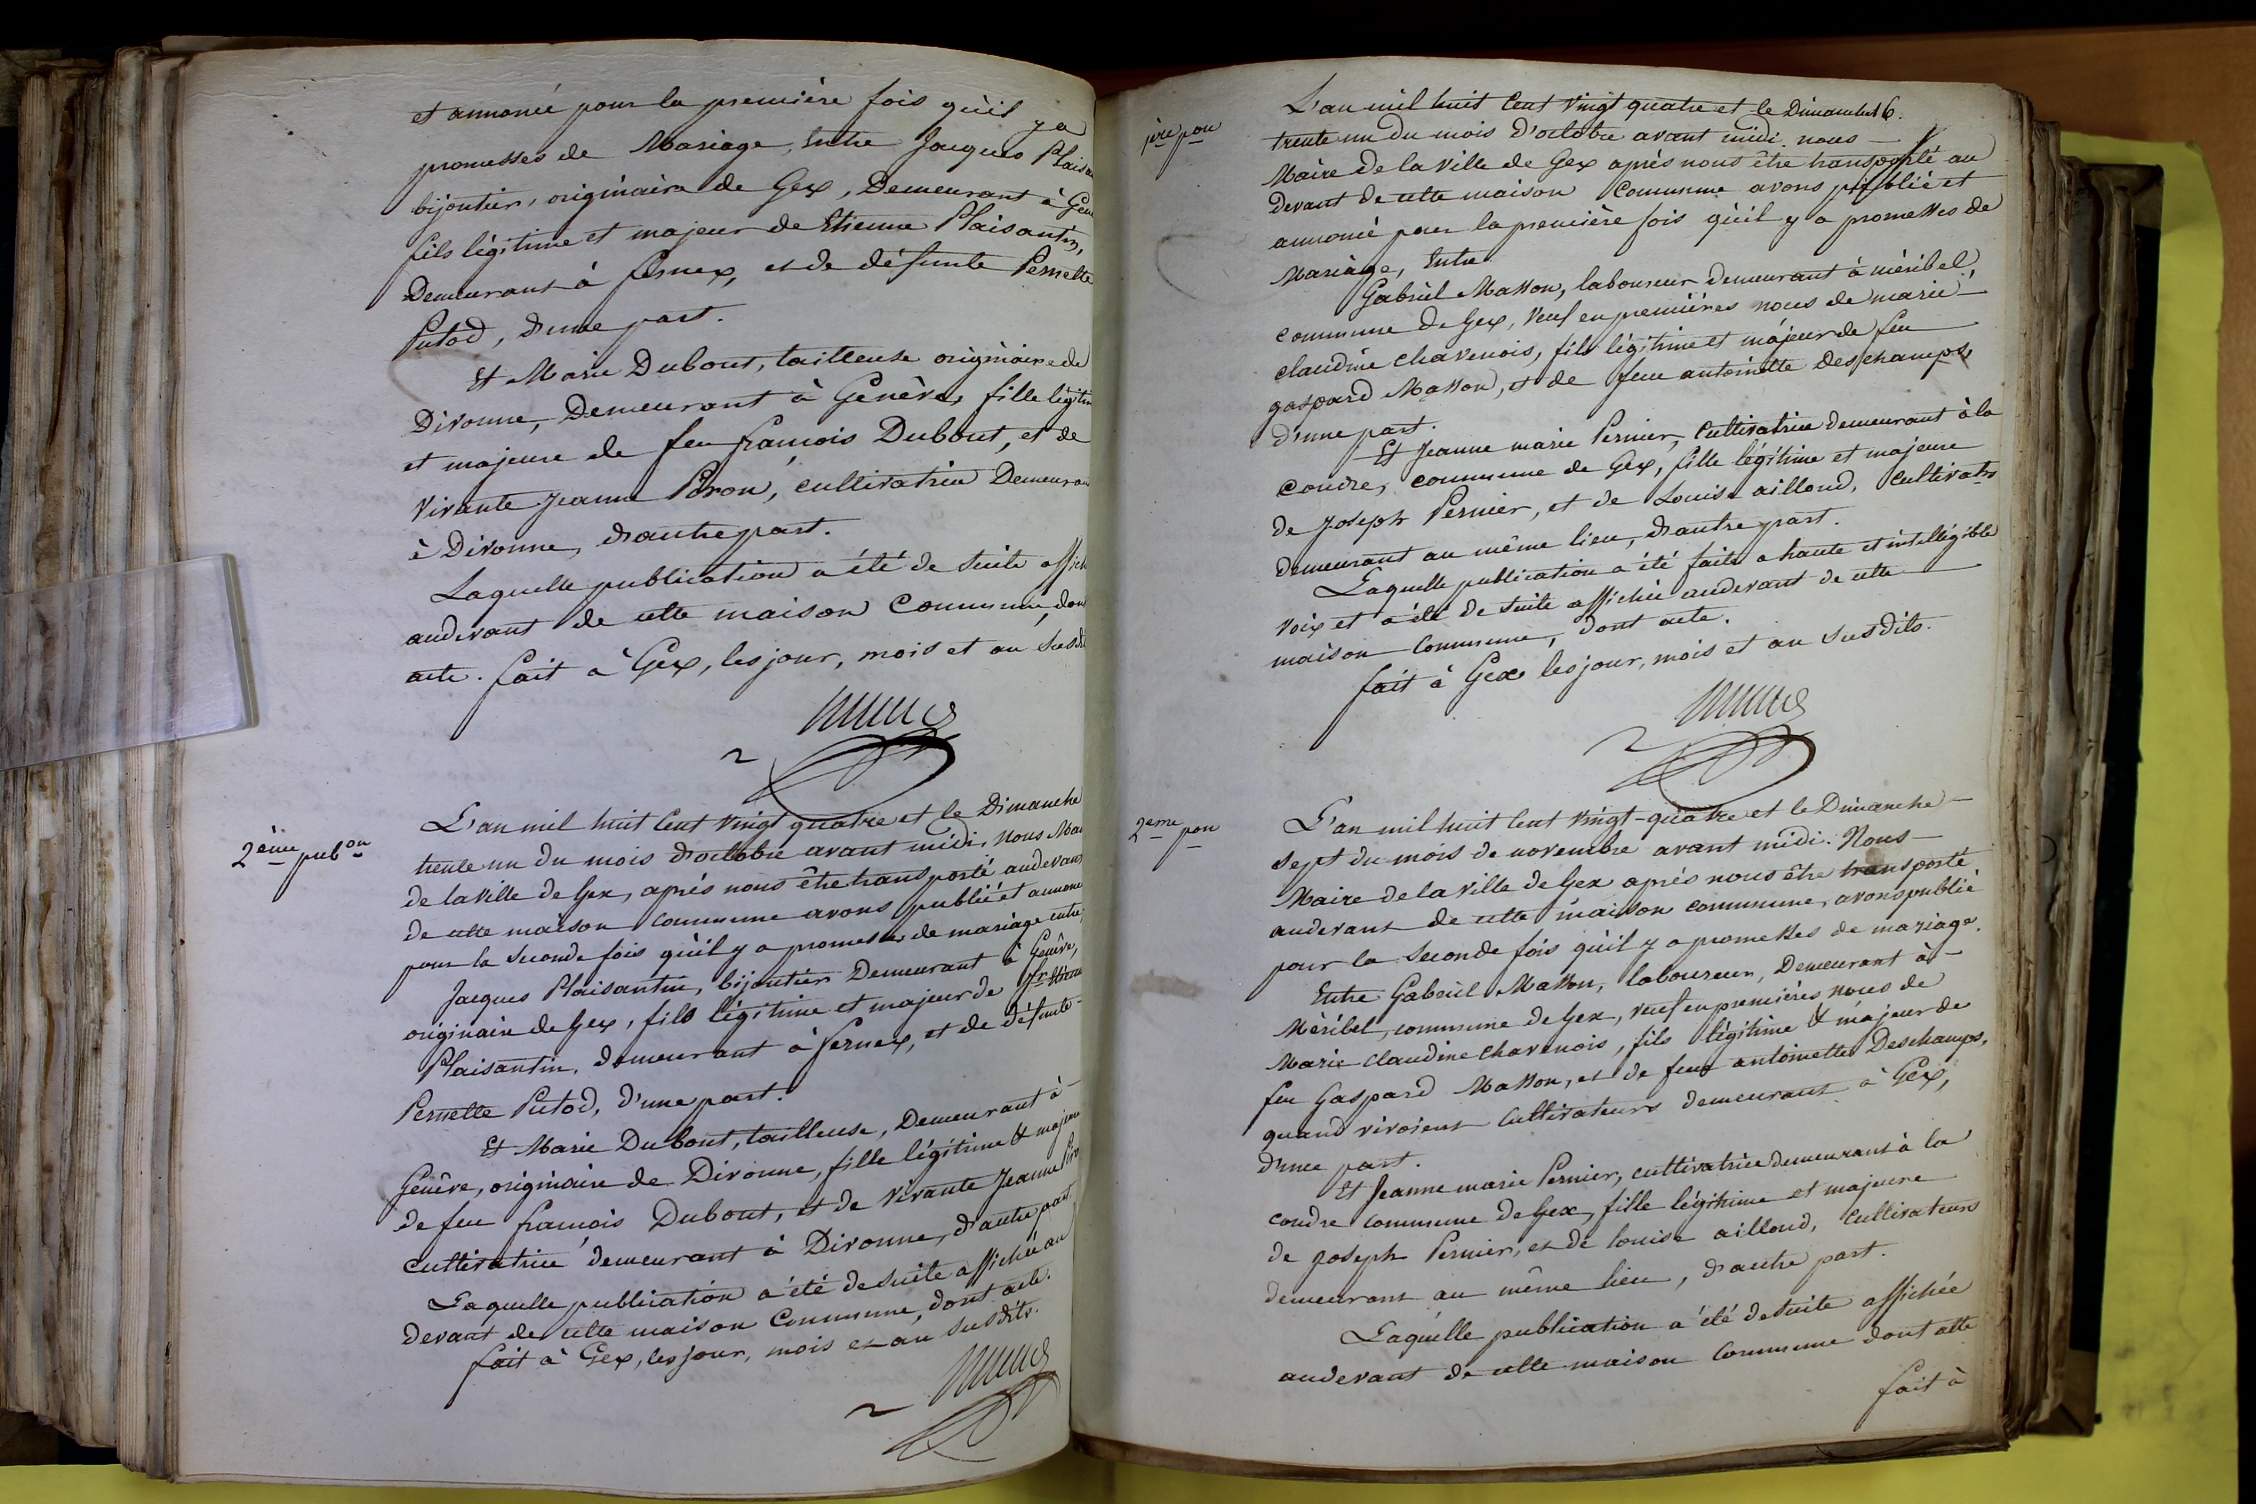 et annoncé pour la première fois qu'il y a
promesses de Mariage, Entre Jacques Plaisan
bijoutier, originaire de Gex, Demeurant à Gen
fils légitime et majeur de Etienne Plaisantin,
Demeurant à fernex, et de défunte Pernette
Putod, d'une part.
Et Marie Dubout, tailleuse originaire de
Divonne, Demeurant à Genève, fille légitim
et majeure de feu françois Dubout, et de
vivante Jeanne Piron, cultivatrice Demeuran
à Divonne, d'autre part.
Laquelle publication a été de suite affich
audevant de cette maison Commune, dont
acte. fait à Gex, les jour, mois et an susdi
2ème pubon
L'an mil huit Cent vingt quatre et le Dimanche
trente un du mois d'octobre avant midi, nous Mai
de la ville de Gex, après nous être transporté audevant
de cette maison commune avons publié et annoncé
pour la seconde fois qu'il y a promesses de mariage entre
Jacques Plaisantin, bijoutier Demeurant à Genève,
originaire de Gex, fils légitime et majeur de Etienne
Plaisantin, demeurant à fernex, et de défunte
Pernette Putod, d'une part.
Et Marie Dubout, tailleuse, Demeurant à
Genève, originaire de Divonne, fille légitime & majeure
de feu françois Dubout, et de vivante Jeanne Piron
cultivatrice demeurant à Divonne, d'autre part,
Laquelle publication a été de suite affichée au
devant de cette maison Commune, dont acte.
fait à Gex, les jour, mois et an susdits.
1ère pon
L'an mil huit Cent vingt quatre et le Dimanche 6.
trente un du mois d'octobre avant midi. nous
Maire de la ville de Gex après nous être transporté au
devant de cette maison Commune avons publié et
annoncé pour la première fois qu'il y a promesses de
Mariage, Entre
Gabriel Masson, laboureur demeurant à méribel,
commune de Gex, veuf en premières noces de marie
claudine chavenois, fils légitime et májeur de feu
gaspard Masson, et de feue antoinette deschamps,
d'une part.
Et Jeanne marie Pernier, Cultivatrice demeurant à la
coudre, commune de Gex, fille légitime et majeure
de Joseph Pernier, et de Louise ailloud, Cultivatrs
demeurant au même lieu, d'autre part.
Laquelle publication a été faite a haute et intélligible
voix et a été de suite affichée audevant de cette
maison Commune, dont acte.
fait à Gex les jour, mois et an susdits.
2eme pon
L'an mil huit Cent vingt-quatre et le Dimanche
sept du mois de novembre avant midi. Nous
Maire de la ville de Gex après nous être transporté
audevant de cette maison commune, avons publié
pour la seconde fois qu'il y a promesses de mariage.
Entre Gabriel Masson, laboureur, Demeurant à
Méribel, commune de Gex, veuf en premières noces de
Marie claudine Chavenois, fils légitime & májeur de
feu Gaspard Masson, et de feue antoinette Deschamps,
quand vivoient Cultivateurs demeurant à Gex,
d'une part.
Et Jeanne marie Pernier, cultivatrice demeurant à la
coudre commune de Gex, fille légitime et majeure
de joseph Pernier, et de louise ailloud, Cultivateurs
demeurant au même lieu, d'autre part.
Laquelle publication a été de suite affichée
audevant de cette maison Commune dont acte
fait à